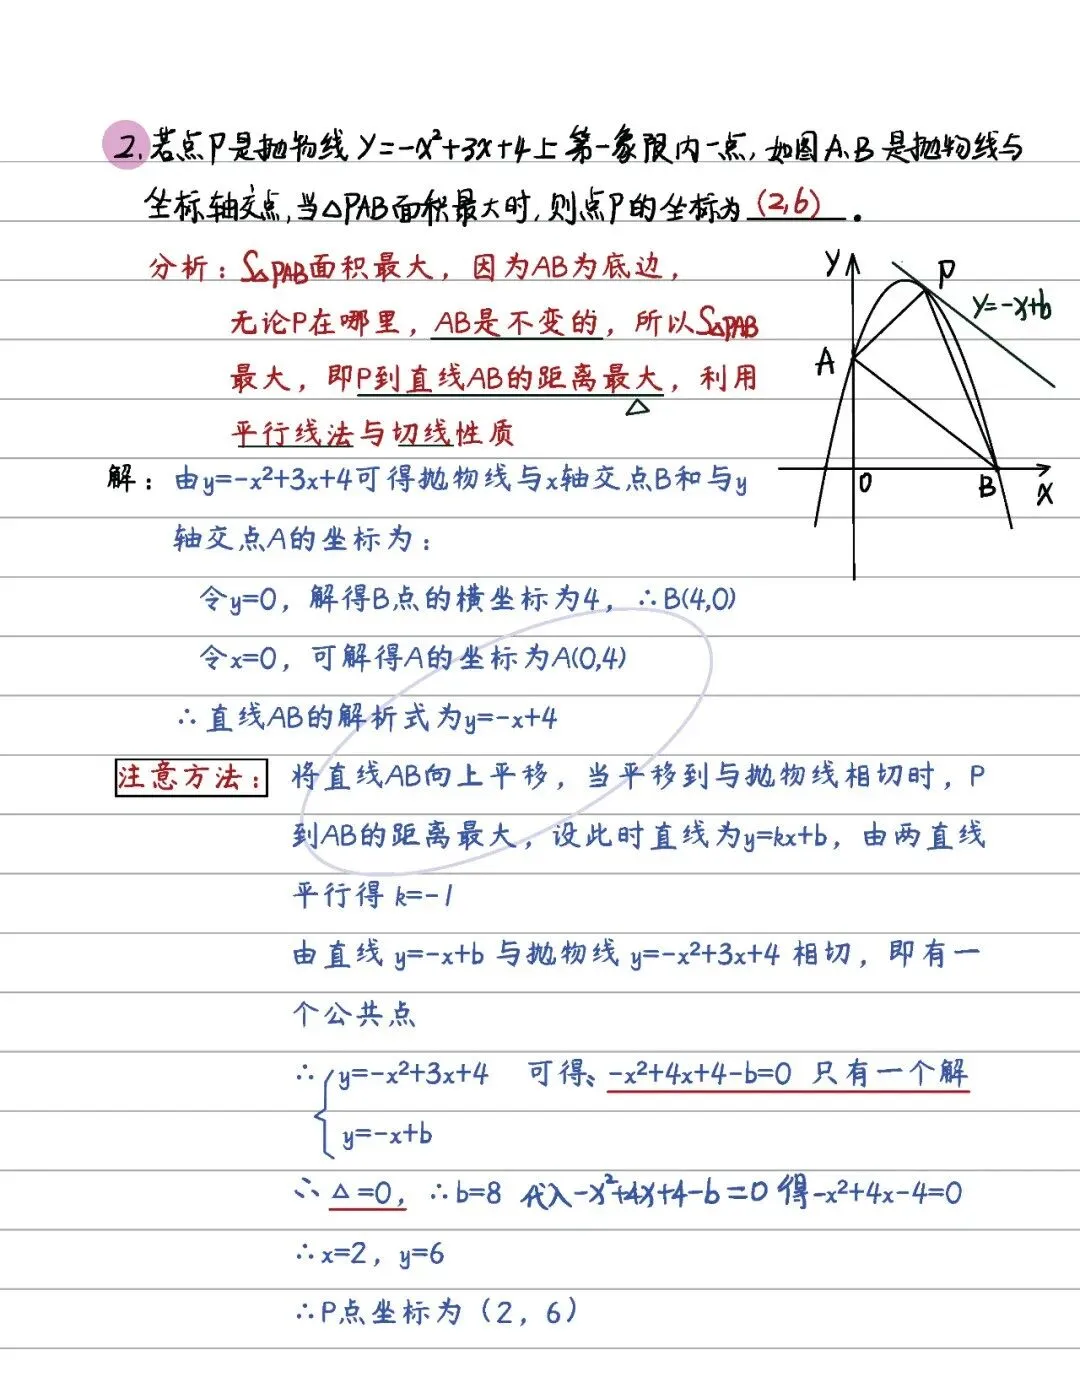 2. 若点P是抛物线 y=-x²+3x+4上第一象限内一点, 如图A、B是抛物线与
坐标轴交点, 当△PAB面积最大时, 则点P的坐标为 (2,6) 。
分析: S△PAB面积最大, 因为AB为底边,
无论P在哪里, AB是不变的, 所以S△PAB
最大, 即P到直线AB的距离最大, 利用
△
平行线法与切线性质
Y
P
y=-x+b
A
O
B
X
解: 由y=-x²+3x+4可得抛物线与x轴交点B和与y
轴交点A的坐标为:
令y=0, 解得B点的横坐标为4, ∴B(4,0)
令x=0, 可解得A的坐标为A(0,4)
∴直线AB的解析式为y=-x+4
注意方法: 将直线AB向上平移, 当平移到与抛物线相切时, P
到AB的距离最大, 设此时直线为y=kx+b, 由两直线
平行得 k=-1
由直线 y=-x+b 与抛物线 y=-x²+3x+4 相切, 即有一
个公共点
∴ { y=-x²+3x+4 可得、-x²+4x+4-b=0 只有一个解
y=-x+b
∴ △=0, ∴b=8 代入-x²+4x+4-b=0 得-x²+4x-4=0
∴x=2, y=6
∴P点坐标为 (2, 6)